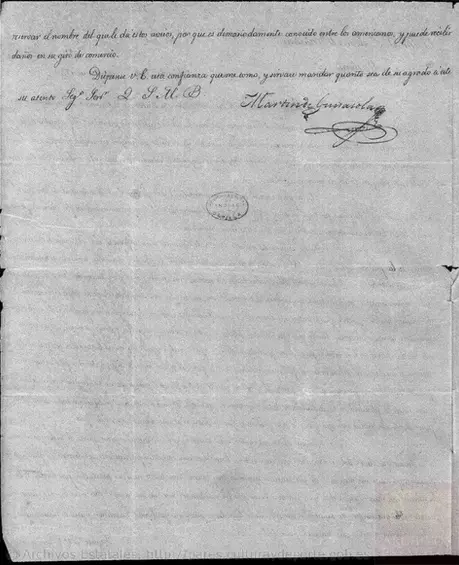 el nombre del que le da estos avisos, por que es demasiadamente conocido entre los americanos, y puede recibir
daños en su giro de comercio.
Dispense V. E. esta confianza que me tomo, y sirvase mandar quanto sea de su agrado á este
su atento Seg.º Serv.r Q. S. M. B.
Martin de
SEVILLA
© Archivos Estatales, http://pares.culturaydeporte.gob.es